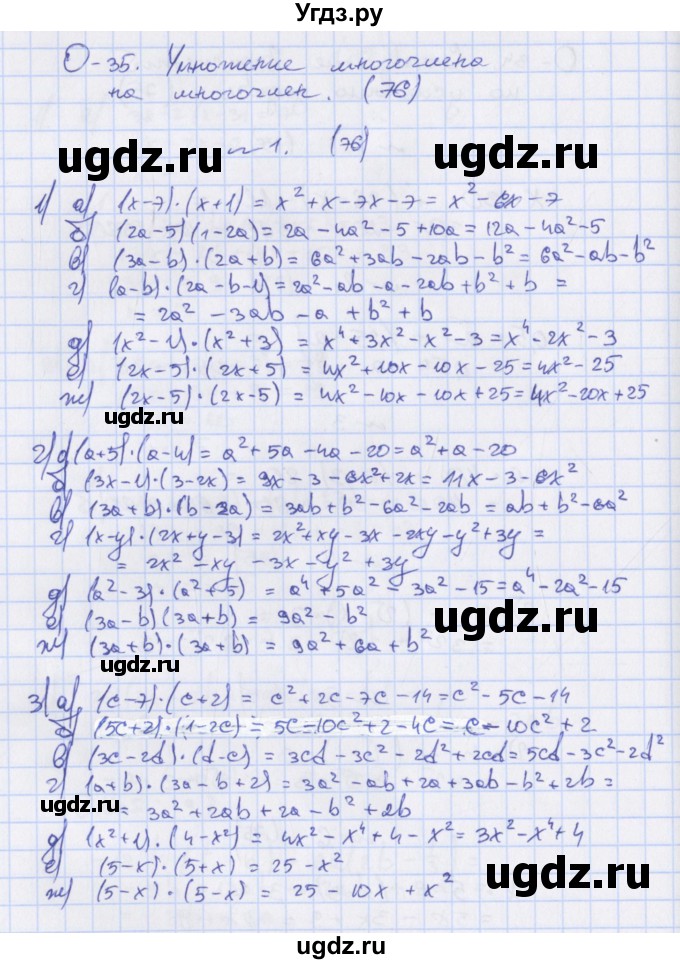 Угдз.ру
О-35. Умножение многочлена
на многочлен. (76)
ugdz.ru ugdz.ru
№1. (76)
1) а) (x-7)·(x+1) = x²+x-7x-7 = x²-6x-7
б) (2a-5)(1-2a) = 2a-4a²-5+10a = 12a-4a²-5
в) (3a-b)·(2a+b) = 6a²+3ab-2ab-b² = 6a²-ab-b²
г) (a-b)·(2a-b-1) = 2a²-ab-a-2ab+b²+b =
= 2a²-3ab-a+b²+b
д) (x²-1)·(x²+3) = x⁴+3x²-x²-3 = x⁴-2x²-3
е) (2x-5)·(2x+5) = 4x²+10x-10x-25 = 4x²-25
ж) (2x-5)·(2x-5) = 4x²-10x-10x+25 = 4x²-20x+25
ugdz.ru
2) а) (a+5)·(a-4) = a²+5a-4a-20 = a²+a-20
б) (3x-1)·(3-2x) = 9x-3-6x²+2x = 11x-3-6x²
в) (3a+b)·(b-2a) = 3ab+b²-6a²-2ab = ab+b²-6a²
г) (x-y)·(2x+y-3) = 2x²+xy-3x-2xy-y²+3y =
= 2x²-xy-3x-y²+3y
д) (a²-3)·(a²+5) = a⁴+5a²-3a²-15 = a⁴-2a²-15
е) (3a-b)(3a+b) = 9a²-b²
ugdz.ru
ж) (3a+b)·(3a+b) = 9a²+6a+b²
ugdz.ru
3) а) (c-7)·(c+2) = c²+2c-7c-14 = c²-5c-14
б) (5c+2)·(1-2c) = 5c-10c²+2-4c = c-10c²+2
в) (3c-2d)·(d-c) = 3cd-3c²-2d²+2cd = 5cd-3c²-2d²
г) (a+b)·(3a-b+2) = 3a²-ab+2a+3ab-b²+2b =
ugdz.ru
= 3a²+2ab+2a-b²+2b
д) (x²+1)·(4-x²) = 4x²-x⁴+4-x² = 3x²-x⁴+4
е) (5-x)·(5+x) = 25-x²
ugdz.ru
ж) (5-x)·(5-x) = 25-10x+x²
ugdz.ru